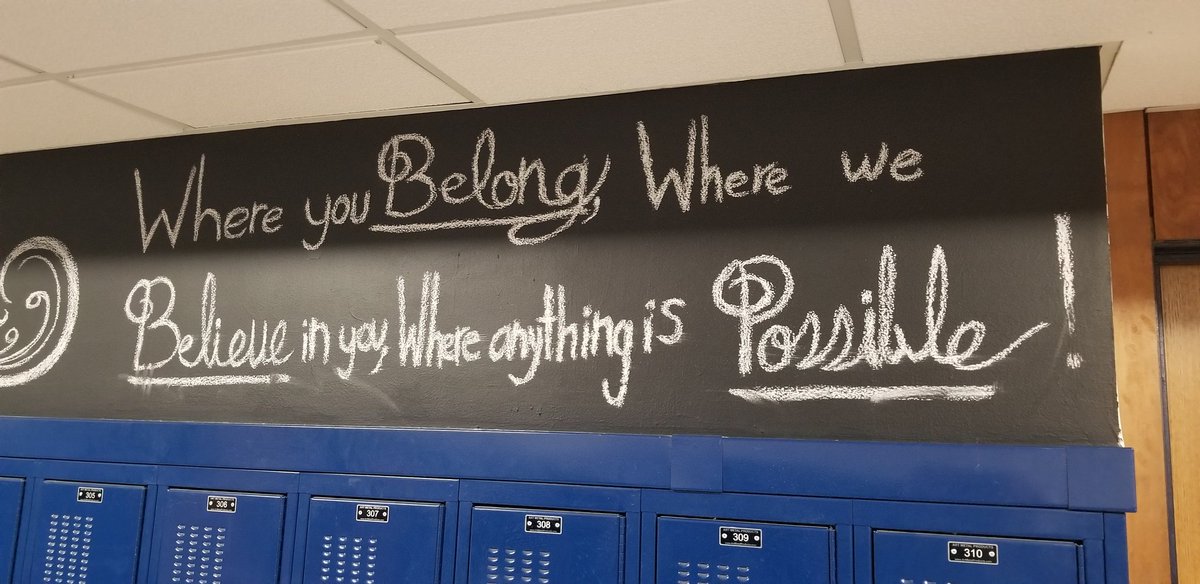 Where you Belong, Where we
Believe in you, Where anything is Possible!
305
306
307
308
309
310